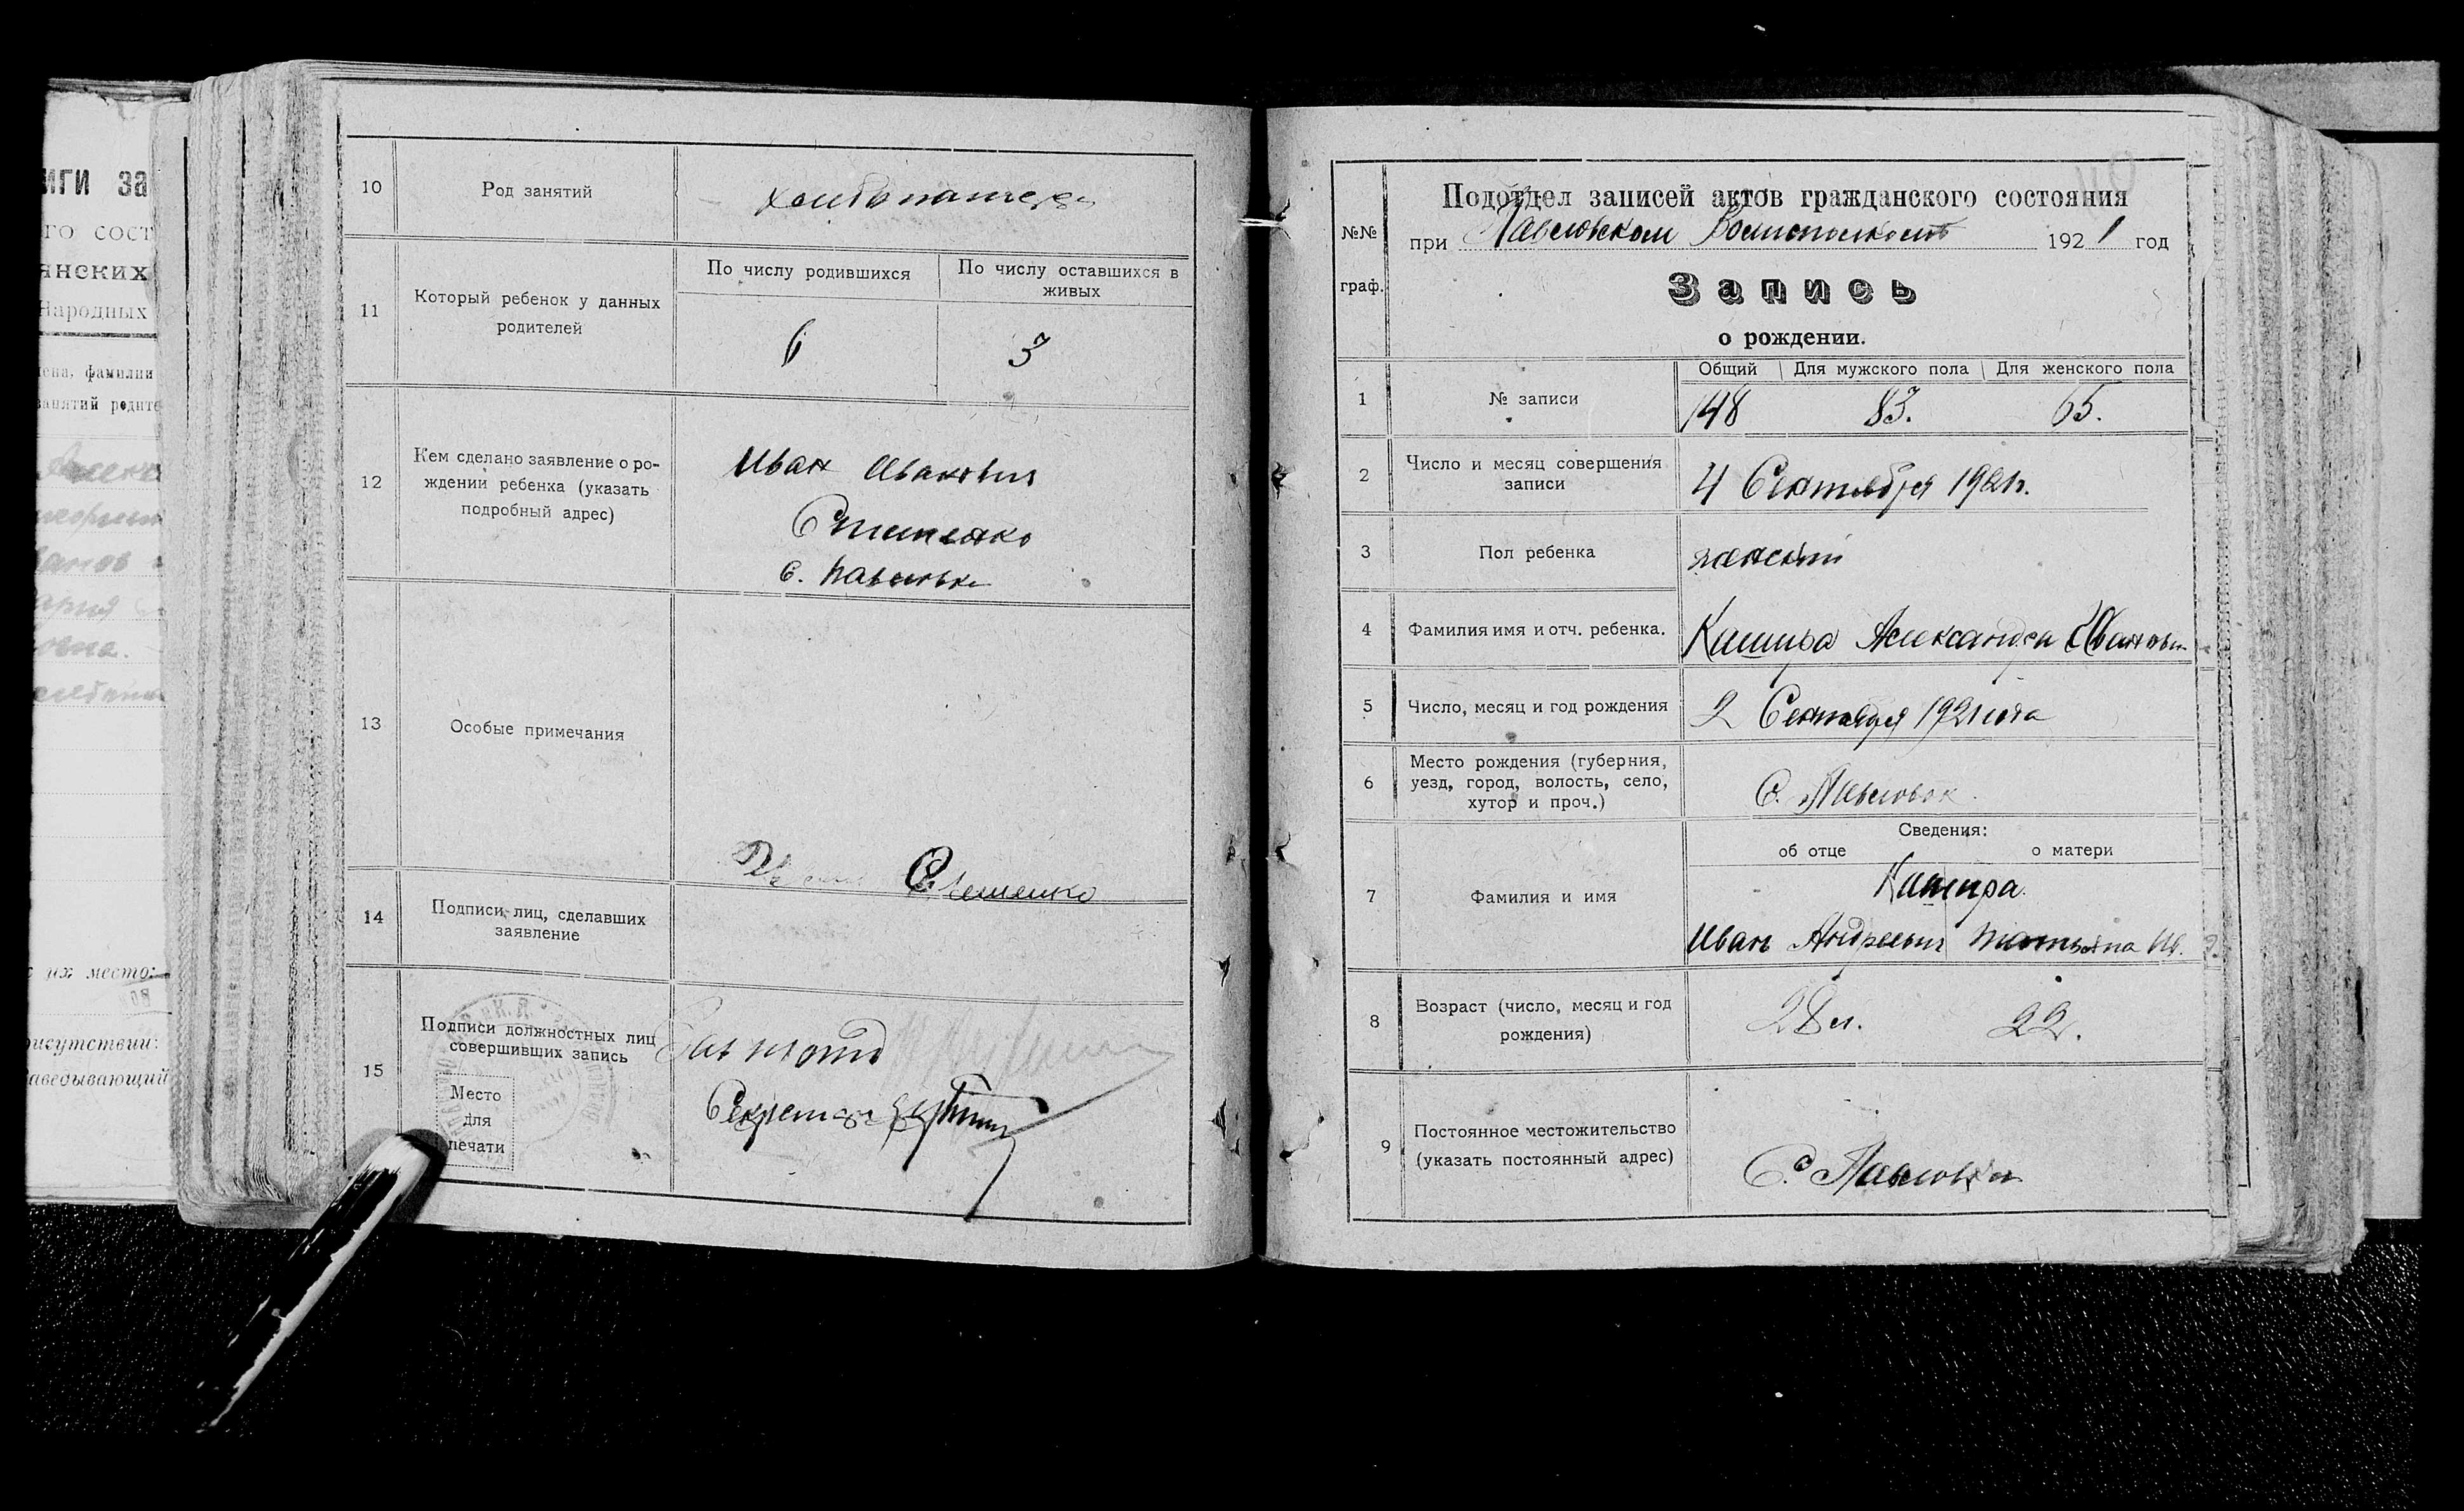 иги за
го сост
янских
Народных
ена, фамилии
занятий родите
их место:
рисутствии:
аведывающий
10
Род занятий
11
Который ребенок у данных
родителей
По числу родившихся
По числу оставшихся в
живых
6
3
12
Кем сделано заявление о ро-
ждении ребенка (указать
подробный адрес)
Иван Иванович
с. Павловка
13
Особые примечания
14
Подписи лиц, сделавших
заявление
15
Подписи должностных лиц
совершивших запись
Место
для
печати
Секретарь
№№
граф.
Подотдел записей актов гражданского состояния
при Павловском Волисполкоме 1921 год
Запись
о рождении.
1
№ записи
Общий
Для мужского пола
Для женского пола
148
83.
65.
2
Число и месяц совершения
записи
4 Сентября 1921г.
3
Пол ребенка
женский
4
Фамилия имя и отч. ребенка.
Кашира Александра Ивановн
5
Число, месяц и год рождения
2 Сентября 1921 года
6
Место рождения (губерния,
уезд, город, волость, село,
хутор и проч.)
С. Павловка
Сведения:
об отце
о матери
7
Фамилия и имя
Кашира
Иван Андреевич
Татьяна Ив.
8
Возраст (число, месяц и год
рождения)
28 л.
22.
9
Постоянное местожительство
(указать постоянный адрес)
С. Павловка